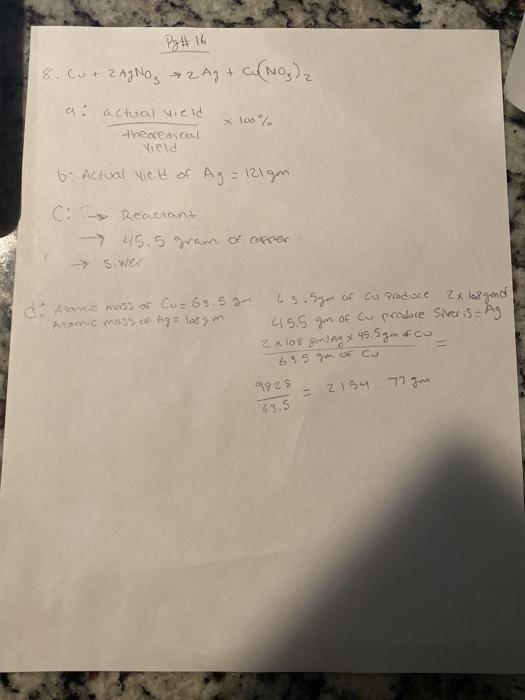 Pg# 16
8. Cu + 2AgNO3 → 2Ag + Cu(NO3)2
a: actual yield
theoretical yield
x 100%
b: Actual yield of Ag = 121gm
C: → Reactant
→ 45.5 gram of copper
→ silver
d: Atomic mass of Cu = 63.5 gm
Atomic mass of Ag = 108gm
63.5gm of Cu Produce 2 x 108 gm of Ag
45.5 gm of Cu produce Silver is =
2 x 108 gm/Ag x 45.5gm of Cu
63.5 gm of Cu
=
9828
63.5
= 2154.77gm